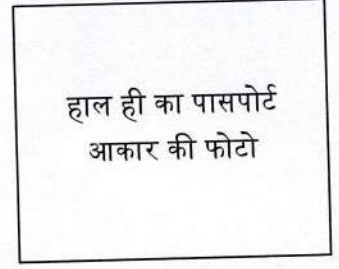 हाल ही का पासपोर्ट
आकार की फोटो